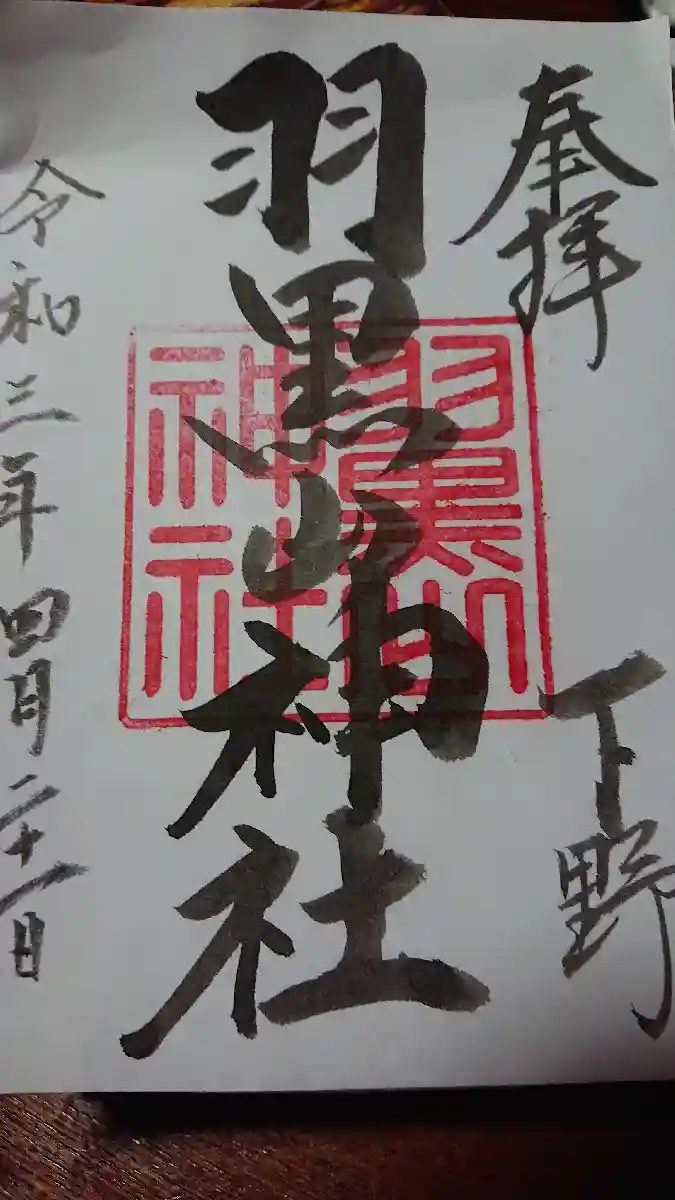 奉拝
下野
羽黒山神社
羽黒山
神社
令和三年四月二十一日